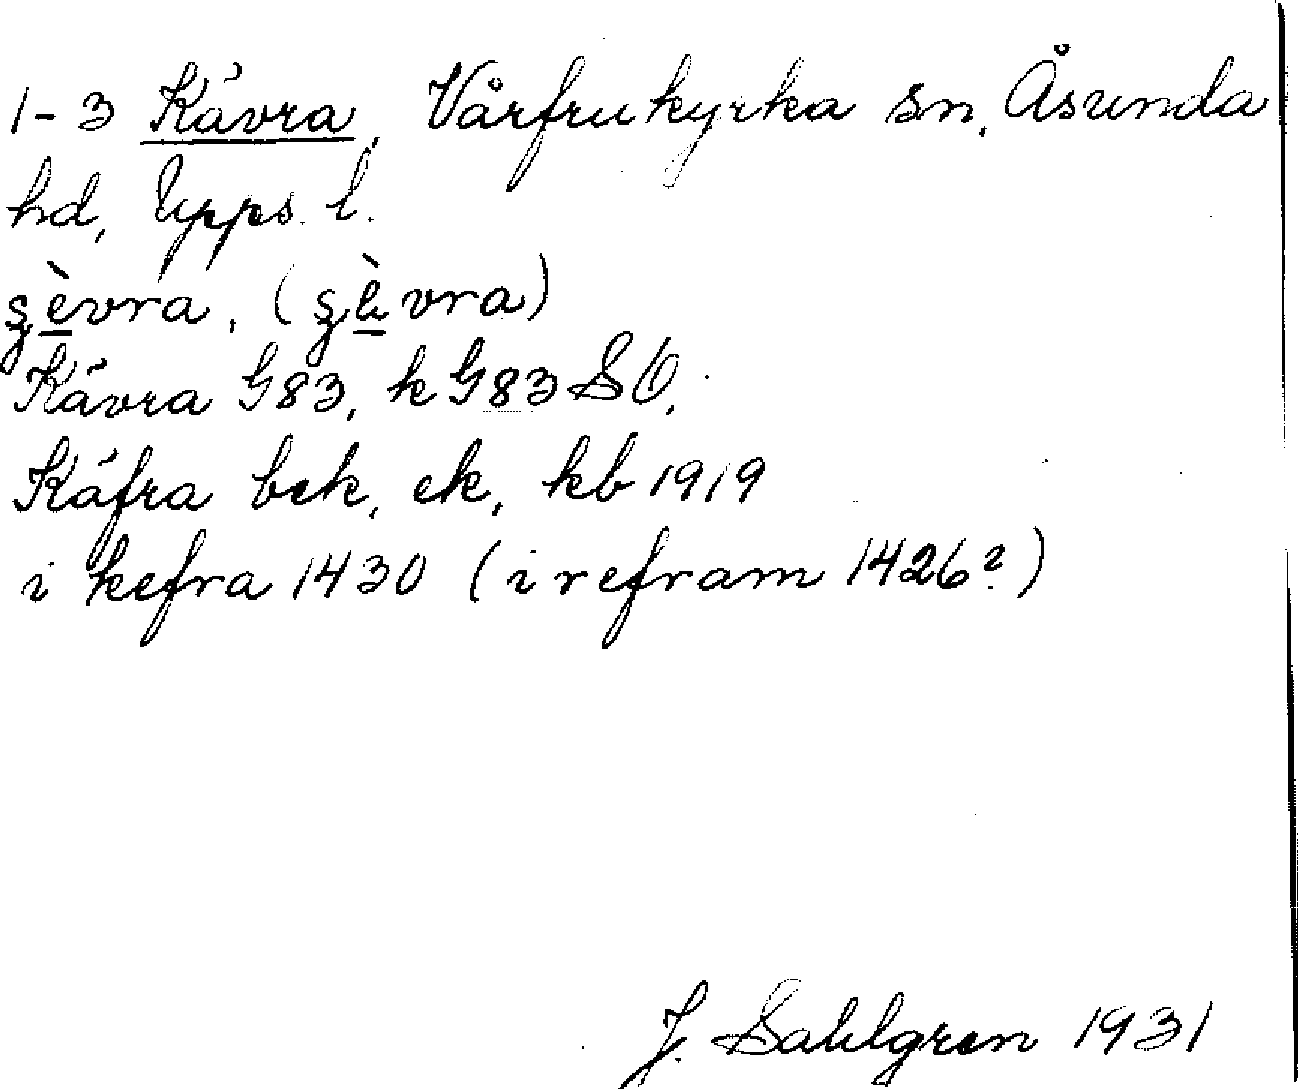 1-3 Kävra, Vårfrukyrka sn, Åsunda
hd, Upps. l.
ʂèvra, (ʂè vra)
Kävra G83, k G83 SÖ,
Käfra bek, ek, kb 1919
i kefra 1430 (i refram 1426?)
J. Sahlgren 1931